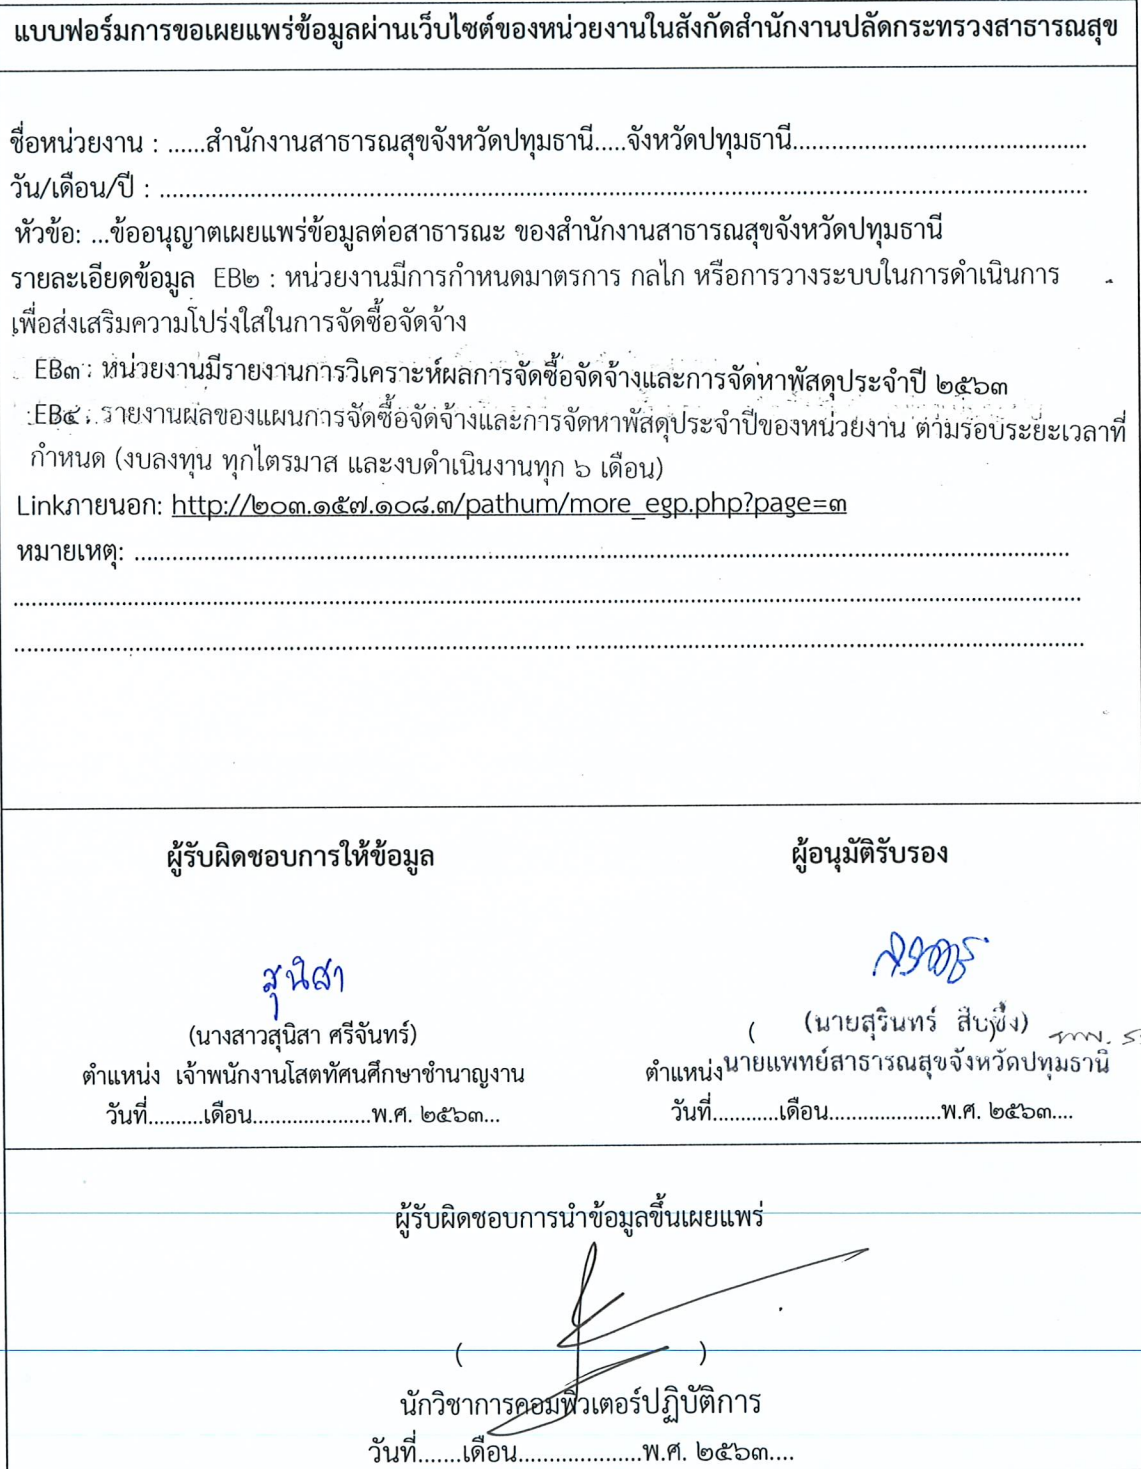 แบบฟอร์มการขอเผยแพร่ข้อมูลผ่านเว็บไซต์ของหน่วยงานในสังกัดสำนักงานปลัดกระทรวงสาธารณสุข
ชื่อหน่วยงาน : ......สำนักงานสาธารณสุขจังหวัดปทุมธานี.....จังหวัดปทุมธานี...............................................
วัน/เดือน/ปี : ...............................................................................................................................................
หัวข้อ: ...ข้ออนุญาตเผยแพร่ข้อมูลต่อสาธารณะ ของสำนักงานสาธารณสุขจังหวัดปทุมธานี
รายละเอียดข้อมูล EB๒ : หน่วยงานมีการกำหนดมาตรการ กลไก หรือการวางระบบในการดำเนินการ
เพื่อส่งเสริมความโปร่งใสในการจัดซื้อจัดจ้าง
EB๓ : หน่วยงานมีรายงานการวิเคราะห์ผลการจัดซื้อจัดจ้างและการจัดหาพัสดุประจำปี ๒๕๖๓
EB๔ : รายงานผลของแผนการจัดซื้อจัดจ้างและการจัดหาพัสดุประจำปีของหน่วยงาน ตามรอบระยะเวลาที่
กำหนด (งบลงทุน ทุกไตรมาส และงบดำเนินงานทุก ๖ เดือน)
Linkภายนอก: http://๒๐๓.๑๕๗.๑๐๘.๓/pathum/more_egp.php?page=๓
หมายเหตุ: ..................................................................................................................................................
....................................................................................................................................................................
....................................................................................................................................................................
ผู้รับผิดชอบการให้ข้อมูล
ผู้อนุมัติรับรอง
สุนิสา
(นางสาวสุนิสา ศรีจันทร์)
( (นายสุรินทร์ สืบซึ้ง)
ตำแหน่ง เจ้าพนักงานโสตทัศนศึกษาชำนาญงาน
ตำแหน่งนายแพทย์สาธารณสุขจังหวัดปทุมธานี
วันที่..........เดือน.....................พ.ศ. ๒๕๖๓...
วันที่............เดือน....................พ.ศ. ๒๕๖๓....
ผู้รับผิดชอบการนำข้อมูลขึ้นเผยแพร่
( )
นักวิชาการคอมพิวเตอร์ปฏิบัติการ
วันที่.......เดือน......................พ.ศ. ๒๕๖๓....